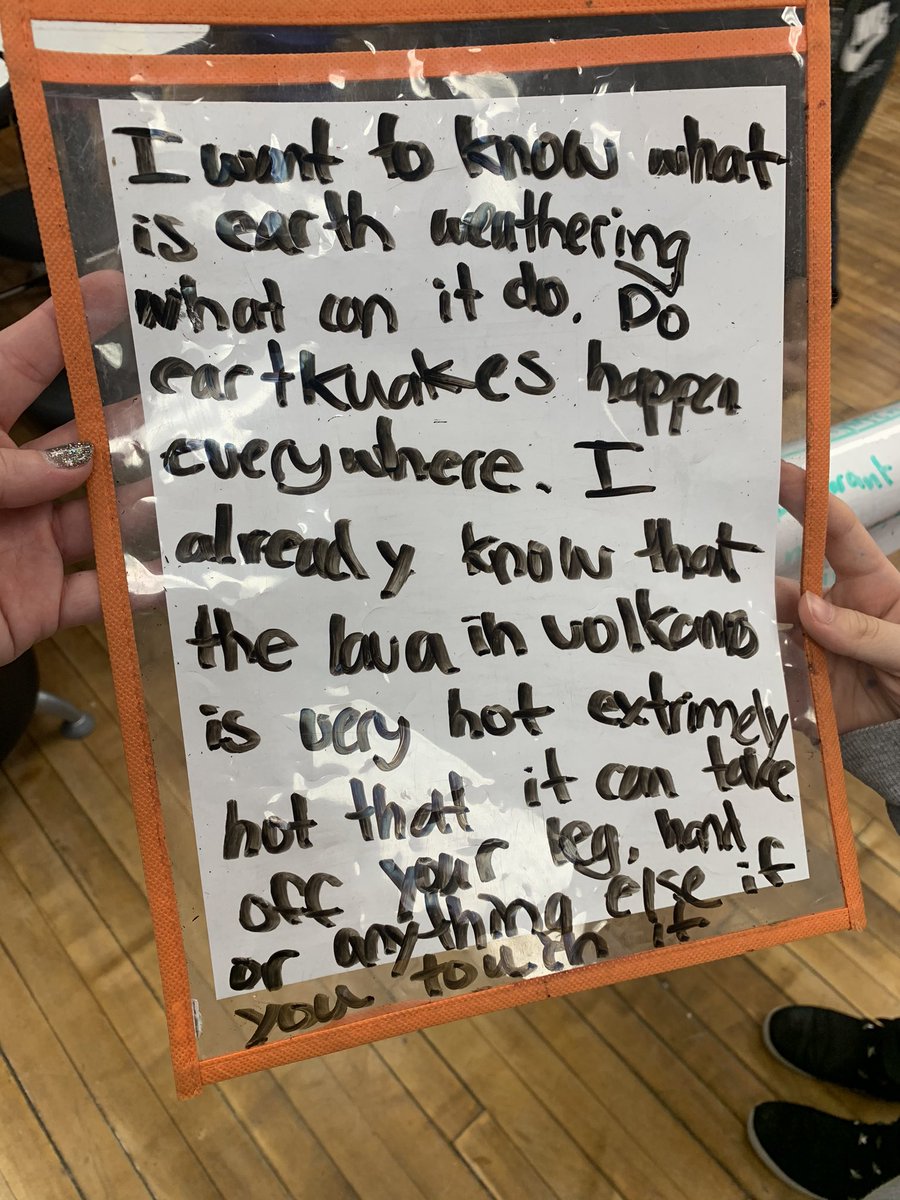 I want to know what
is earth weathering
what can it do. Do
eartkuakes happen
everywhere. I
already know that
the lava in volkano
is very hot extrimely
hot that it can take
off your leg, hand
or anything else if
you touch it
NIKE